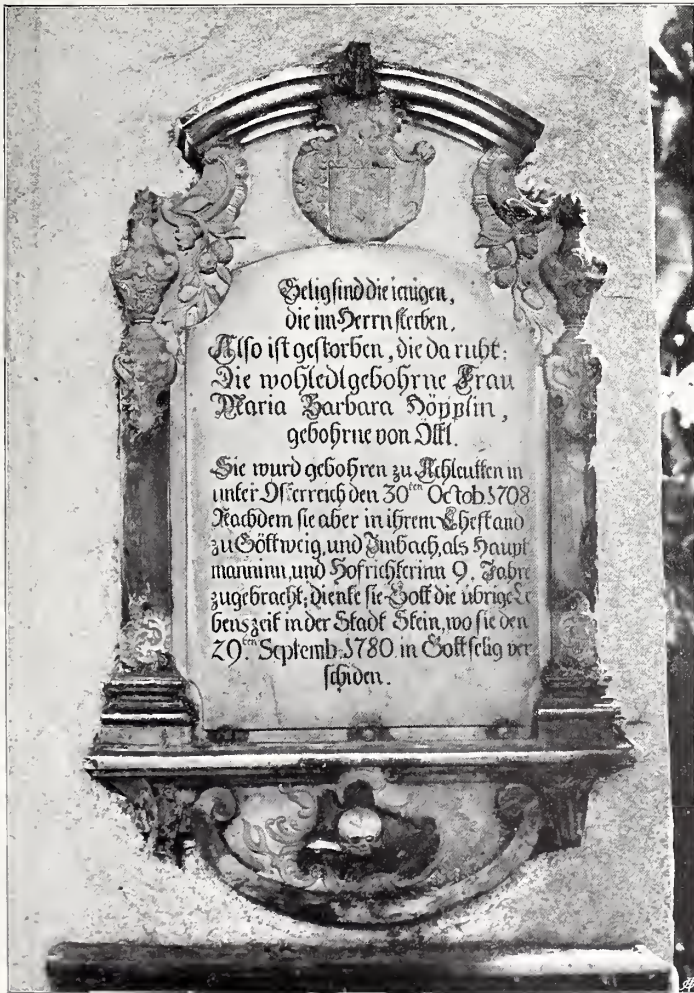 Selig sind die ienigen,
die im Herrn sterben.
Also ist gestorben, die da ruht:
Die wohledlgebohrne Frau
Maria Barbara Höpplin,
gebohrne von
Sie wurd gebohren zu Achleutten in
unter Österreich den 30ten Octob. 1708
Nachdem sie aber in ihrem Ehestand
zu Göttweig, und Imbach, als Haupt
manninn, und Hofrichterinn 9. Jahre
zugebracht; diente sie Gott die übrige Le
benszeit in der Stadt Stein, wo sie den
29.ten Septemb. 1780 in Gott selig ver
schiden.